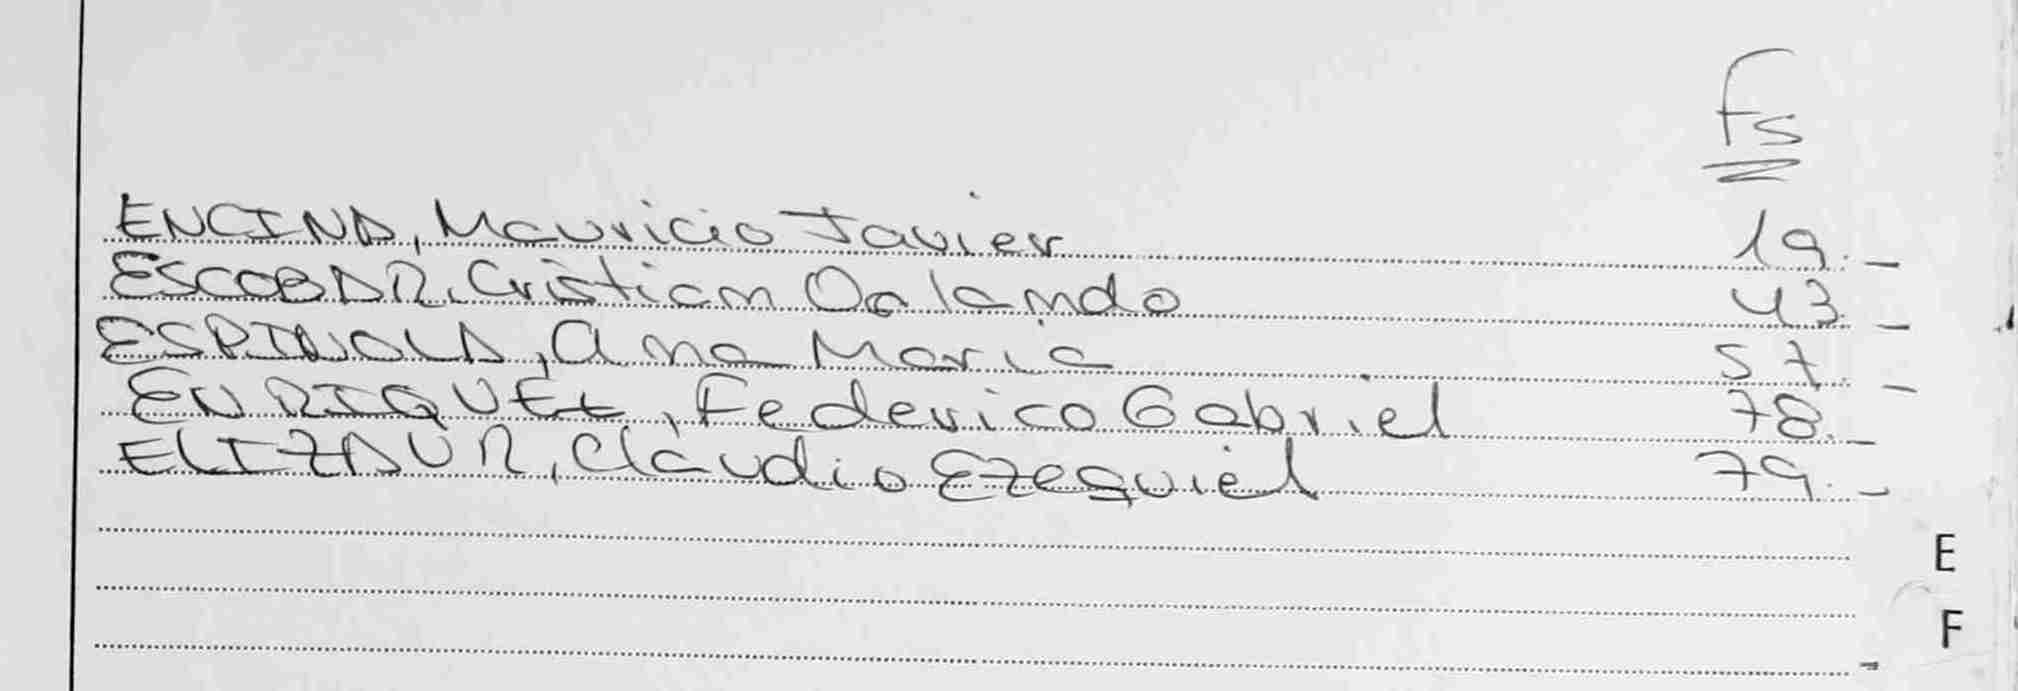 Fs
ENCINA, Mauricio Javier 19.-
ESCOBAR, Cristian Orlando 43.-
ESPINOLA, Ana Maria 57.-
ENRIQUEZ, Federico Gabriel 78.-
ELIZAUR, Claudio Ezequiel 79.-
E
F